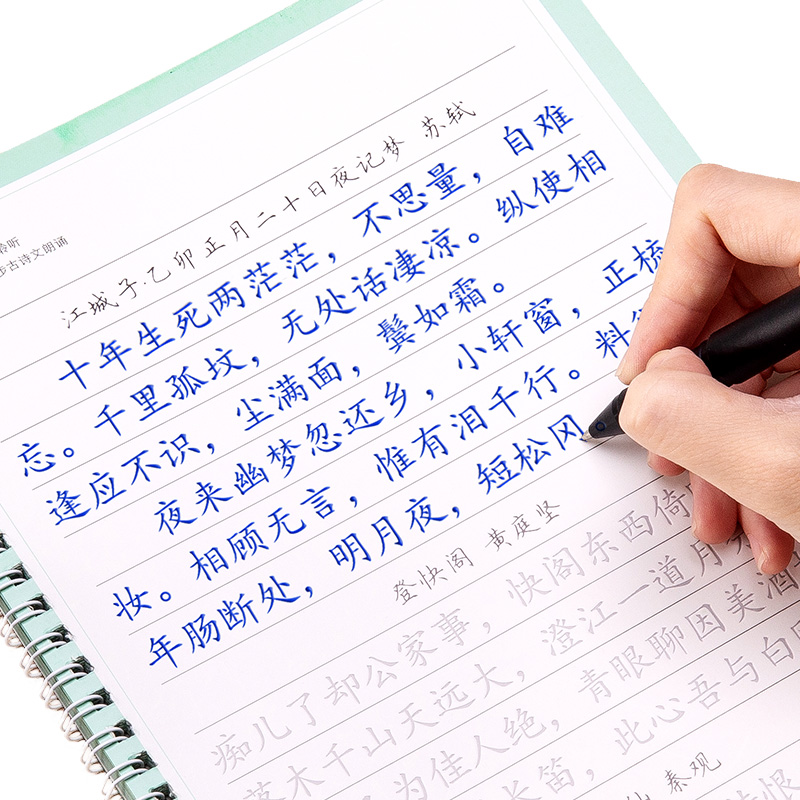 聆听
步古诗文朗诵
江城子·乙卯正月二十日夜记梦 苏轼
十年生死两茫茫，不思量，自难
忘。千里孤坟，无处话凄凉。纵使相
逢应不识，尘满面，鬓如霜。
夜来幽梦忽还乡，小轩窗，正梳
妆。相顾无言，惟有泪千行。料
年肠断处，明月夜，短松冈
登快阁 黄庭坚
痴儿了却公家事，快阁东西倚
落木千山天远大，澄江一道月
为佳人绝，青眼聊因美酒
长笛，此心吾与白
秦观